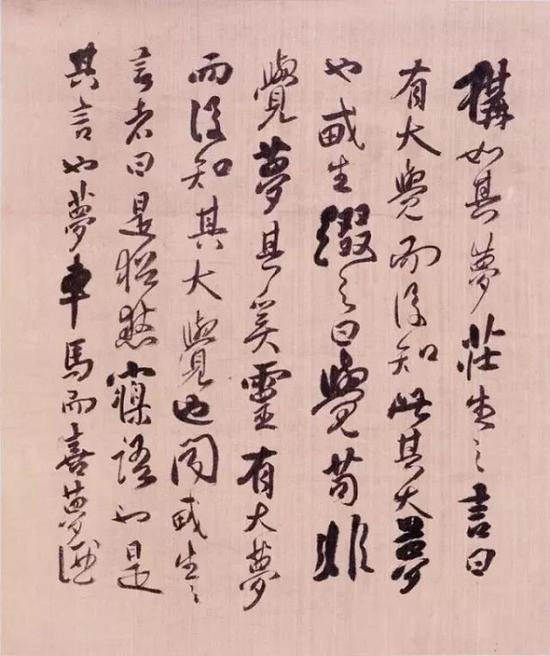 構如其夢莊生之言曰
有大覺而後知此其大夢
也生綴之曰覺苟非
覺夢其奚靈有大夢
而後知其大覺也聞生之
言者曰是猶寐語也是
其言也夢車馬而喜夢酒